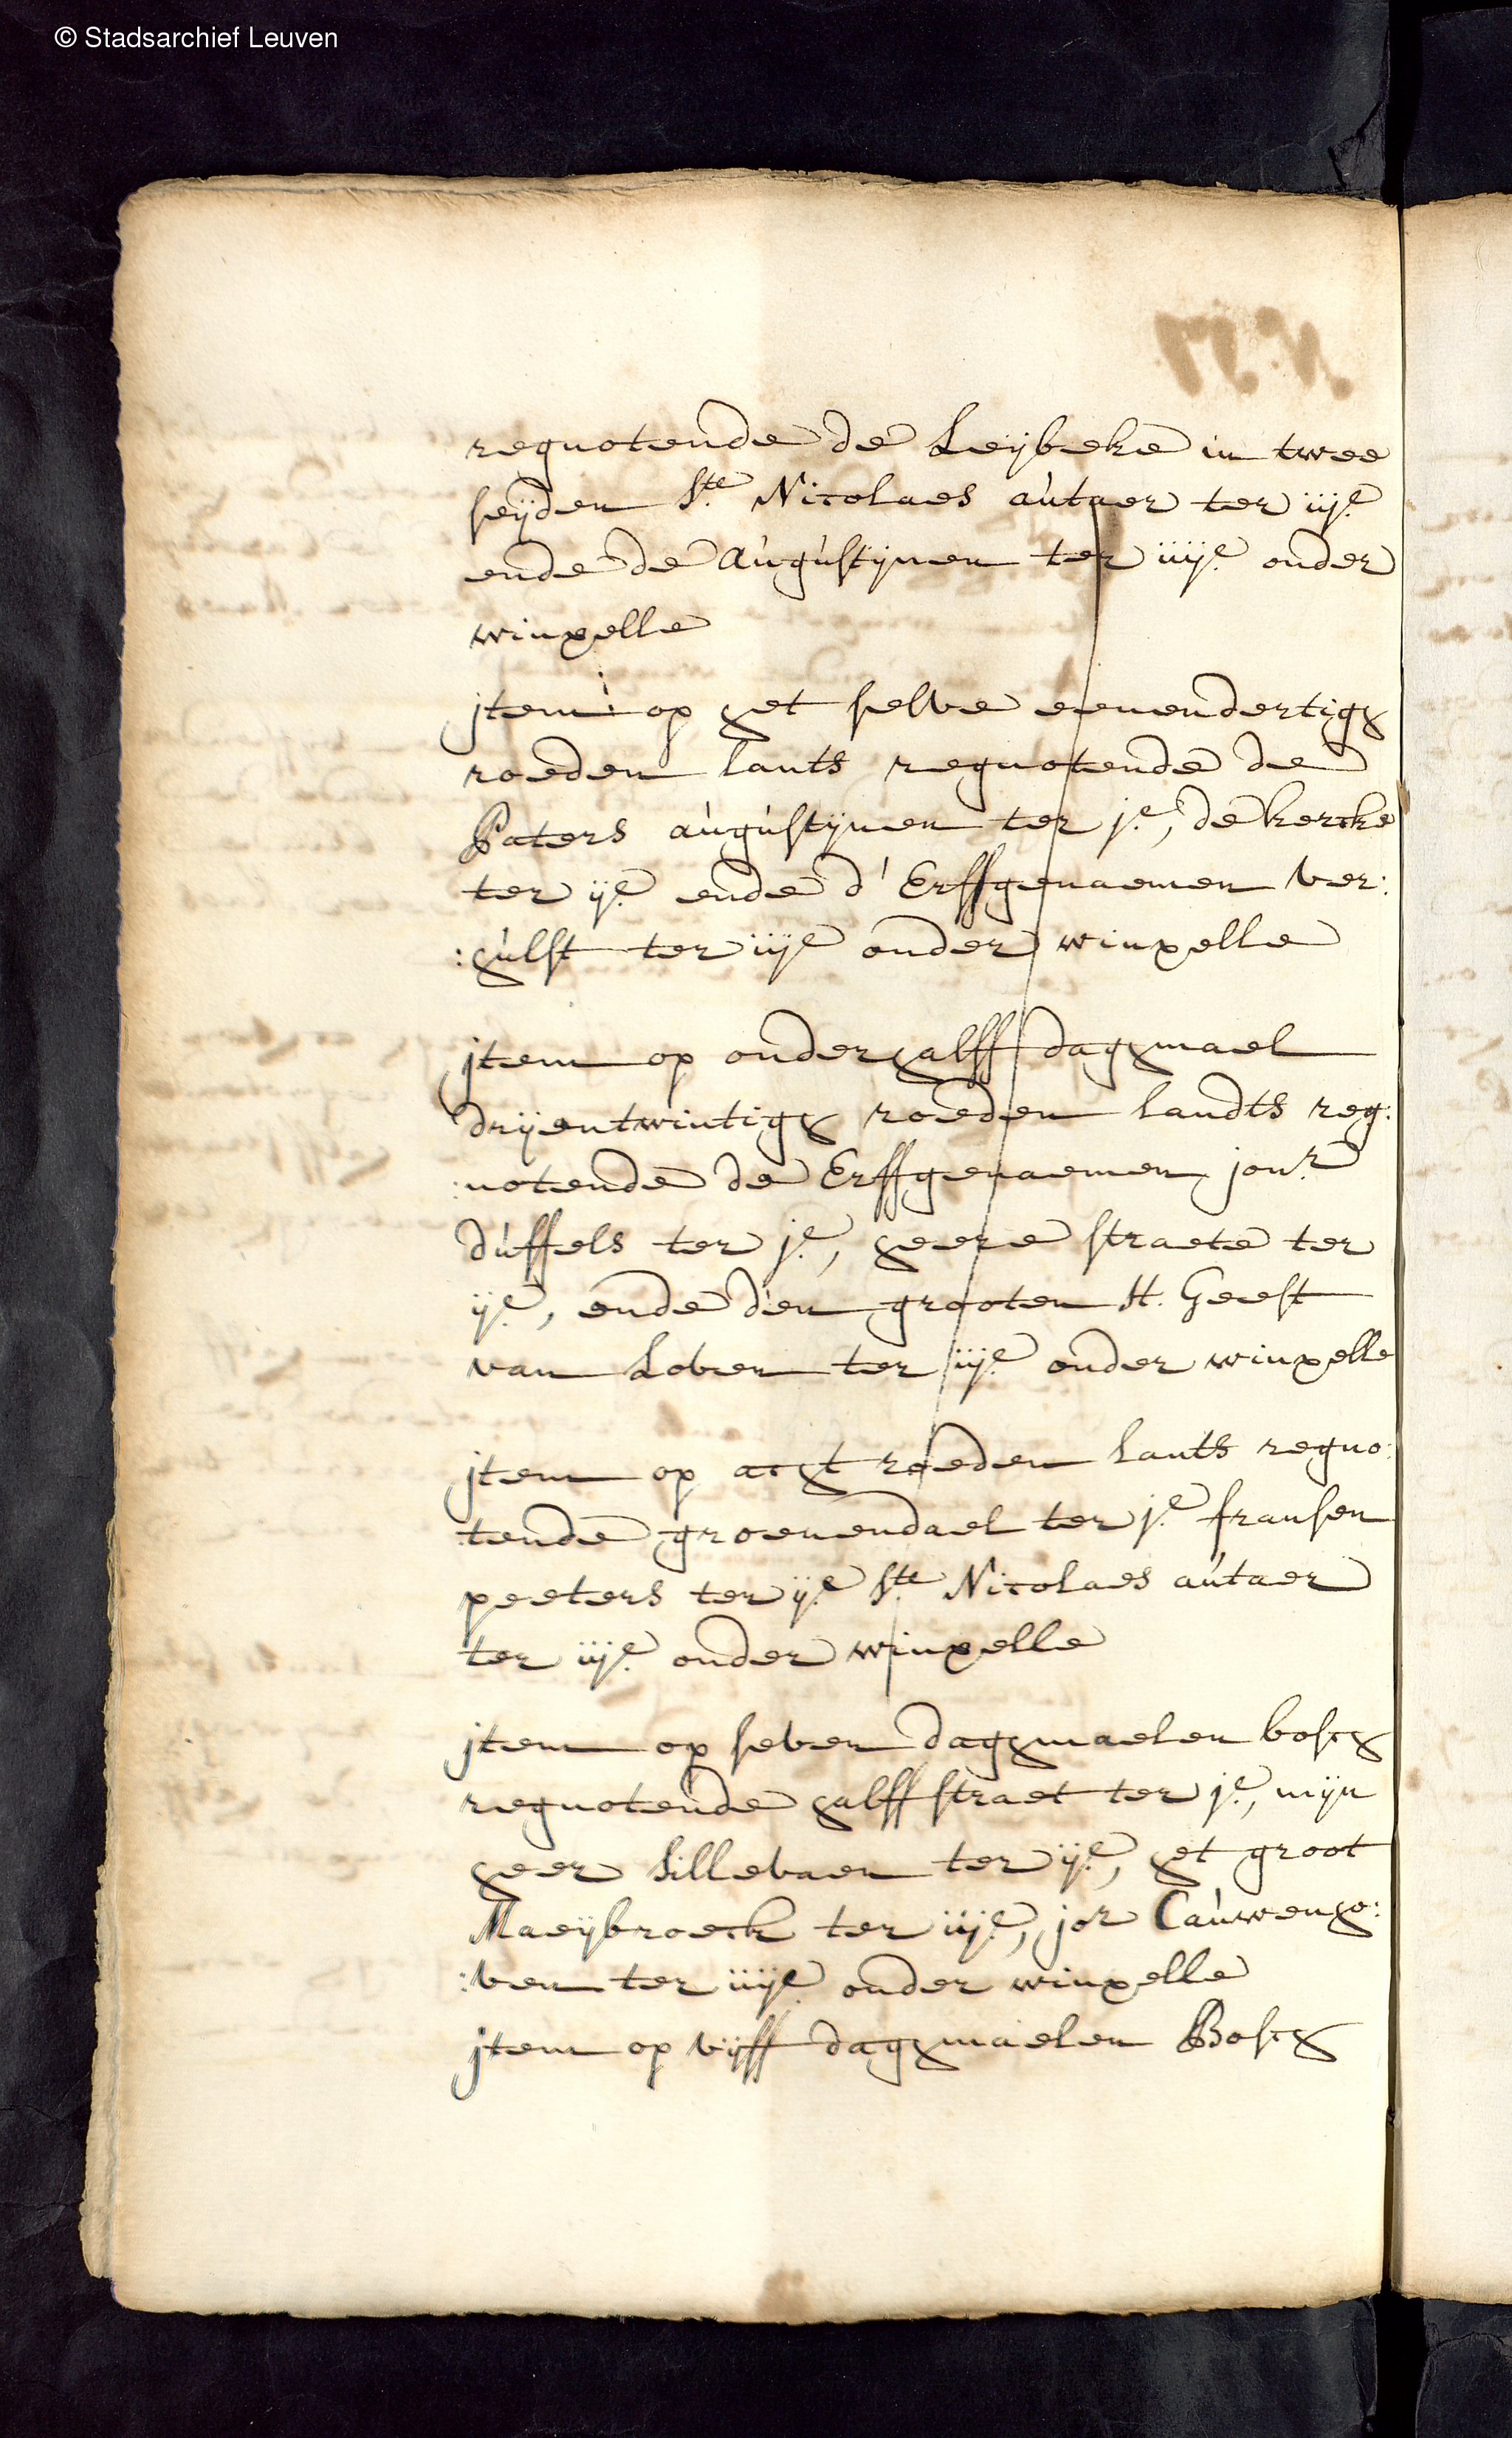 © Stadsarchief Leuven
regnotende de Leijbeke in twee
seijden Ste Nicolaes autaer ter iije
ende de Augustijnen ter iiije onder
winxelle
jtem op het selve eenendertigh
roeden lants regnotende de
Paters augustijnen ter je, de kercke
ter ije ende d' Erffgenaemen ver:
:hulst ter iije onder winxelle
jtem op onderhalff daghmael
drijentwintigh roeden landts reg:
:notende de Erffgenaemen jonr
duffels ter je, heere straete ter
ije, ende den grooten H. Geest
van Loven ter iije onder winxelle
jtem op acht roeden lants regno:
tende groenendael ter je fransen
peeters ter ije ste Nicolaes autaer
ter iije onder winxelle
jtem op seven daghmaelen bosch
regnotende halff straet ter je, mijn
heer Lillevaen ter ije, het groot
Maeijbroeck ter iije, jor Cauwenho:
:ven ter iiije onder winxelle
jtem op vijff daghmaelen Bosch